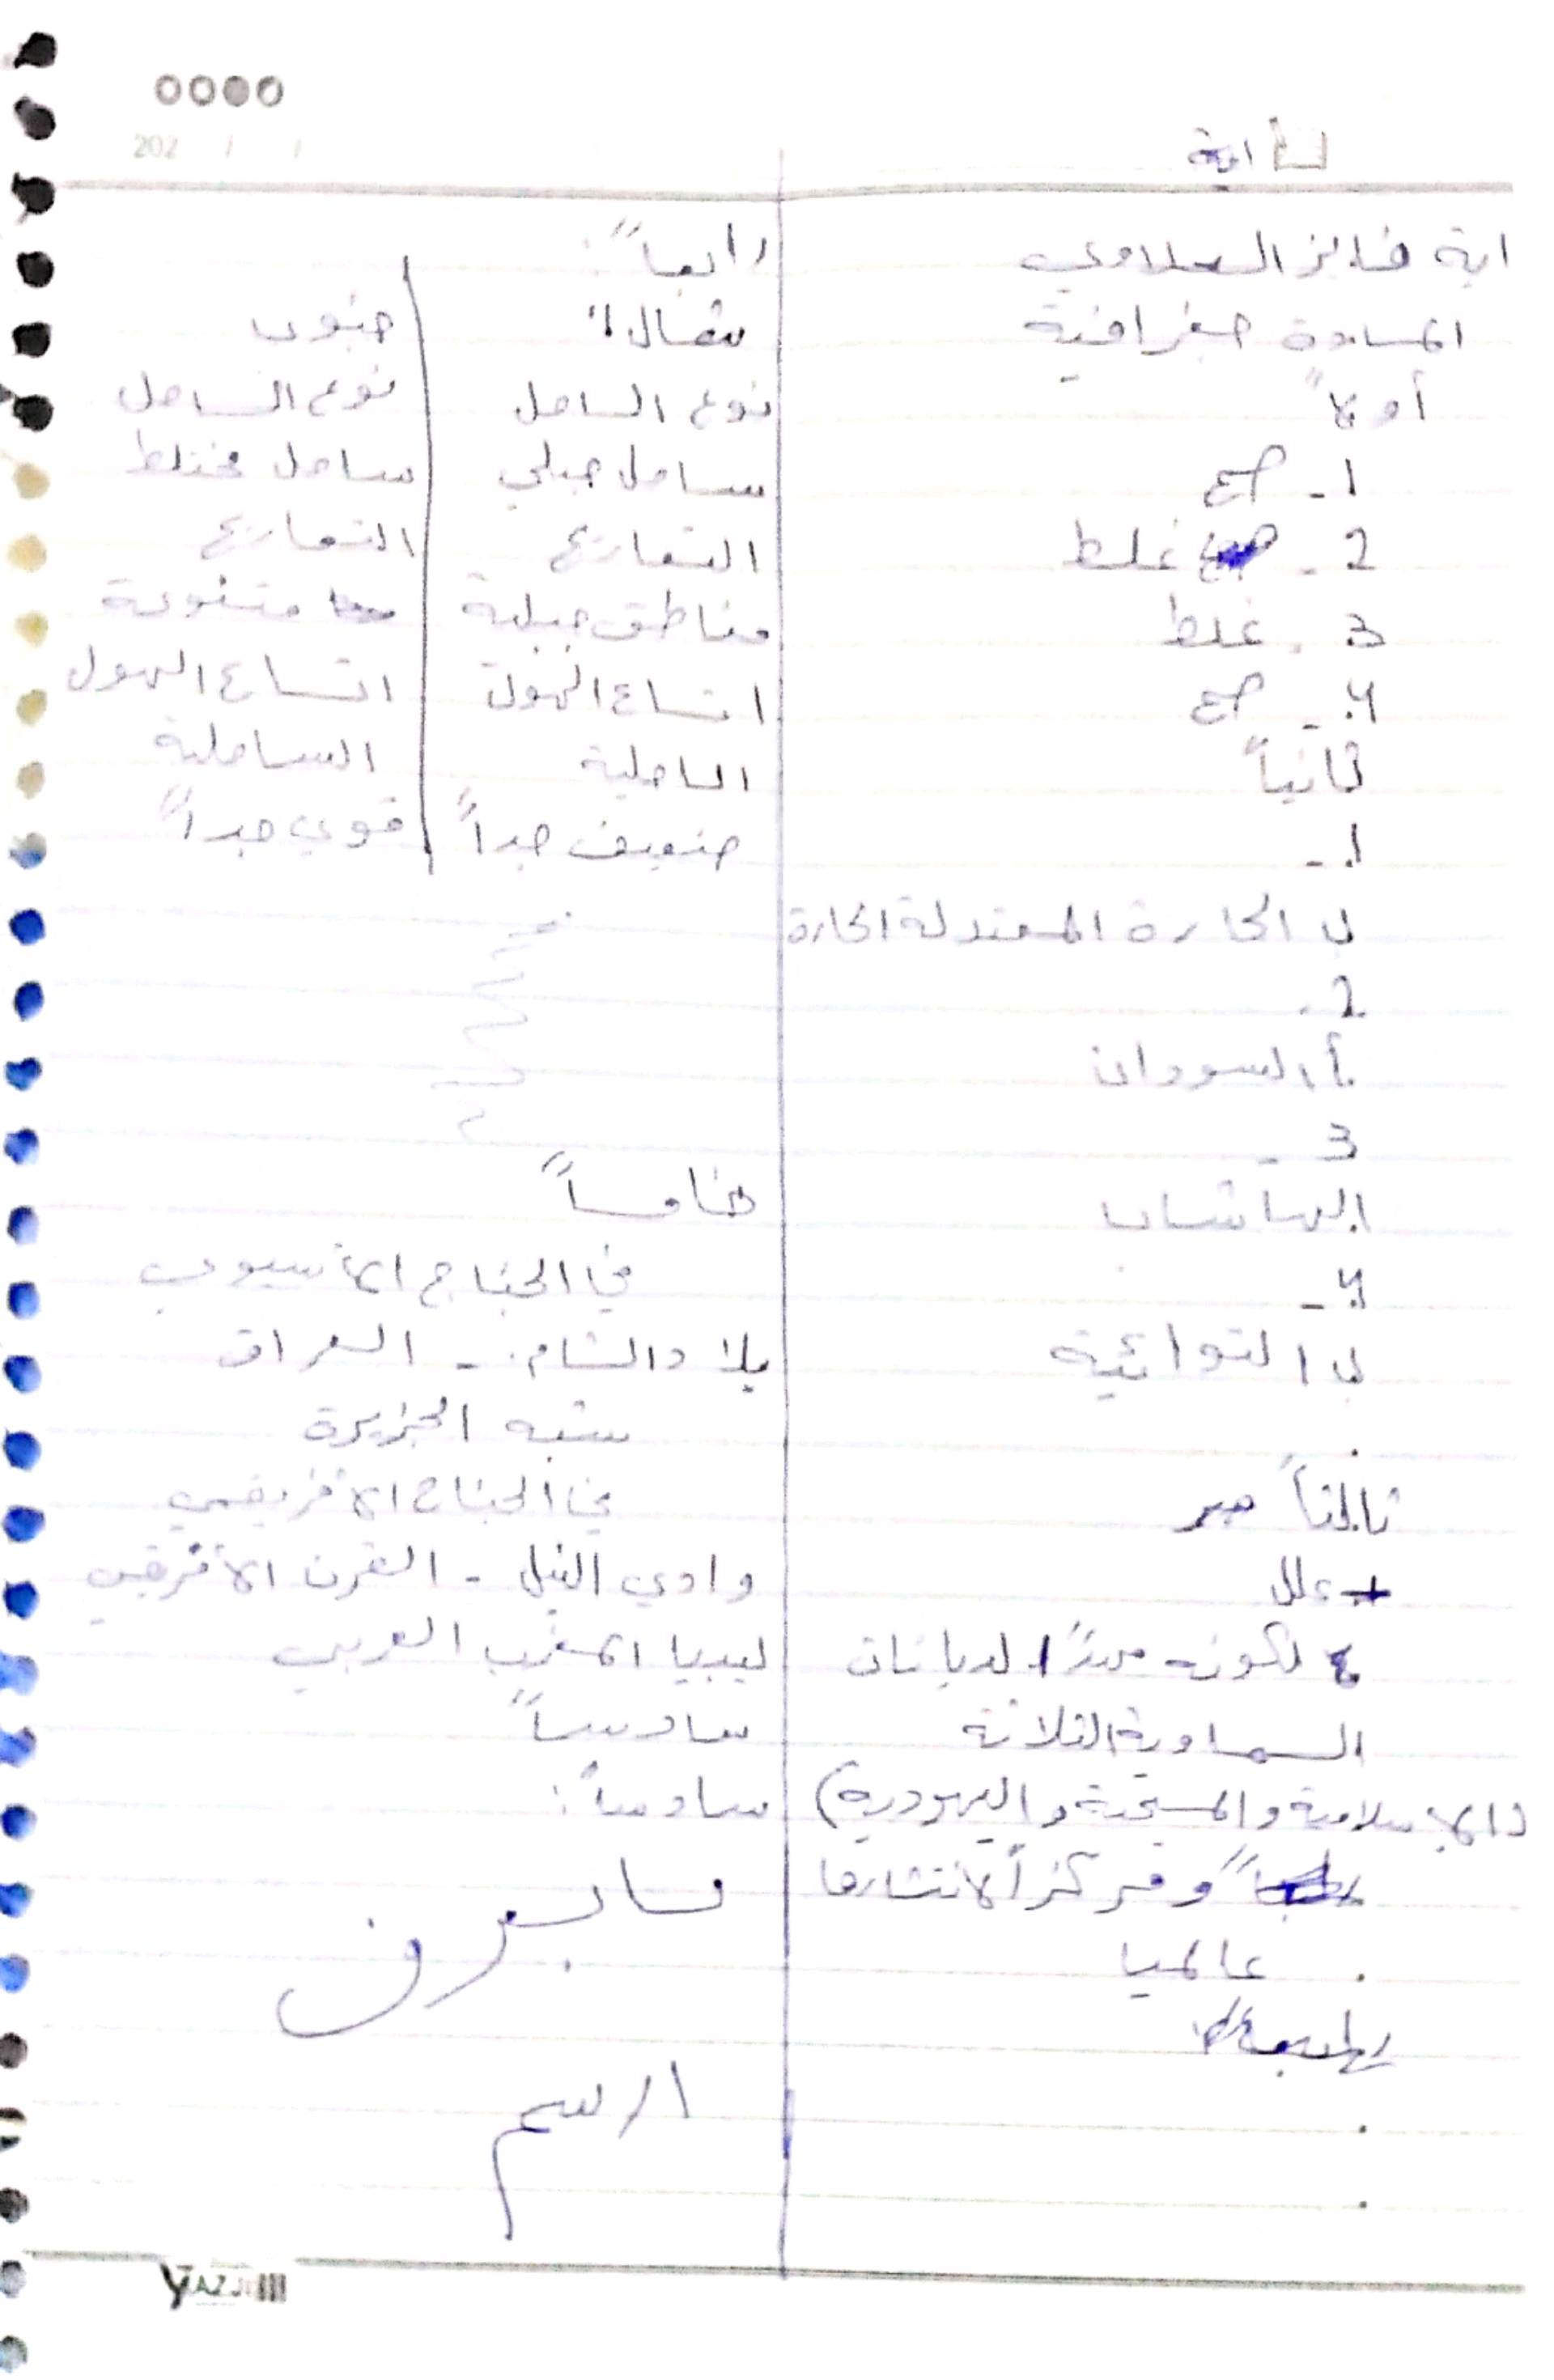 202 / /
اية
اية فائز السلاوي
المادة جغرافية
أولاً
1- صح
2- غلط
3. غلط
4- صح
ثانياً
1-
ب الحارة المعتدلة الحارة
2.
أ السودان
3-
الهاشاب
4-
ب التوائية
ثالثاً
علل
لكونه مبدأ الديانات
السماوية الثلاثة
(الاسلامية والمسيحية واليهودية)
ومركزاً لانتشارها
عالميا
رابعاً:
شمال | جنوب
نوع الساحل | نوع الساحل
ساحل جبلي | ساحل مختلط
التعاريج | التعاريج
مناطق جبلية | متنوعة
اتساع الهول | اتساع الهول
الساحلية | الساحلية
ضعيف جداً | قوي جداً
خامساً
في الجناح الأسيوي
بلاد الشام - العراق
شبه الجزيرة
في الجناح الأفريقي
وادي النيل - القرن الأفرقي
ليبيا المغرب العربي
سادساً
سادساً:
مابعرف
ارسم
YAZJI